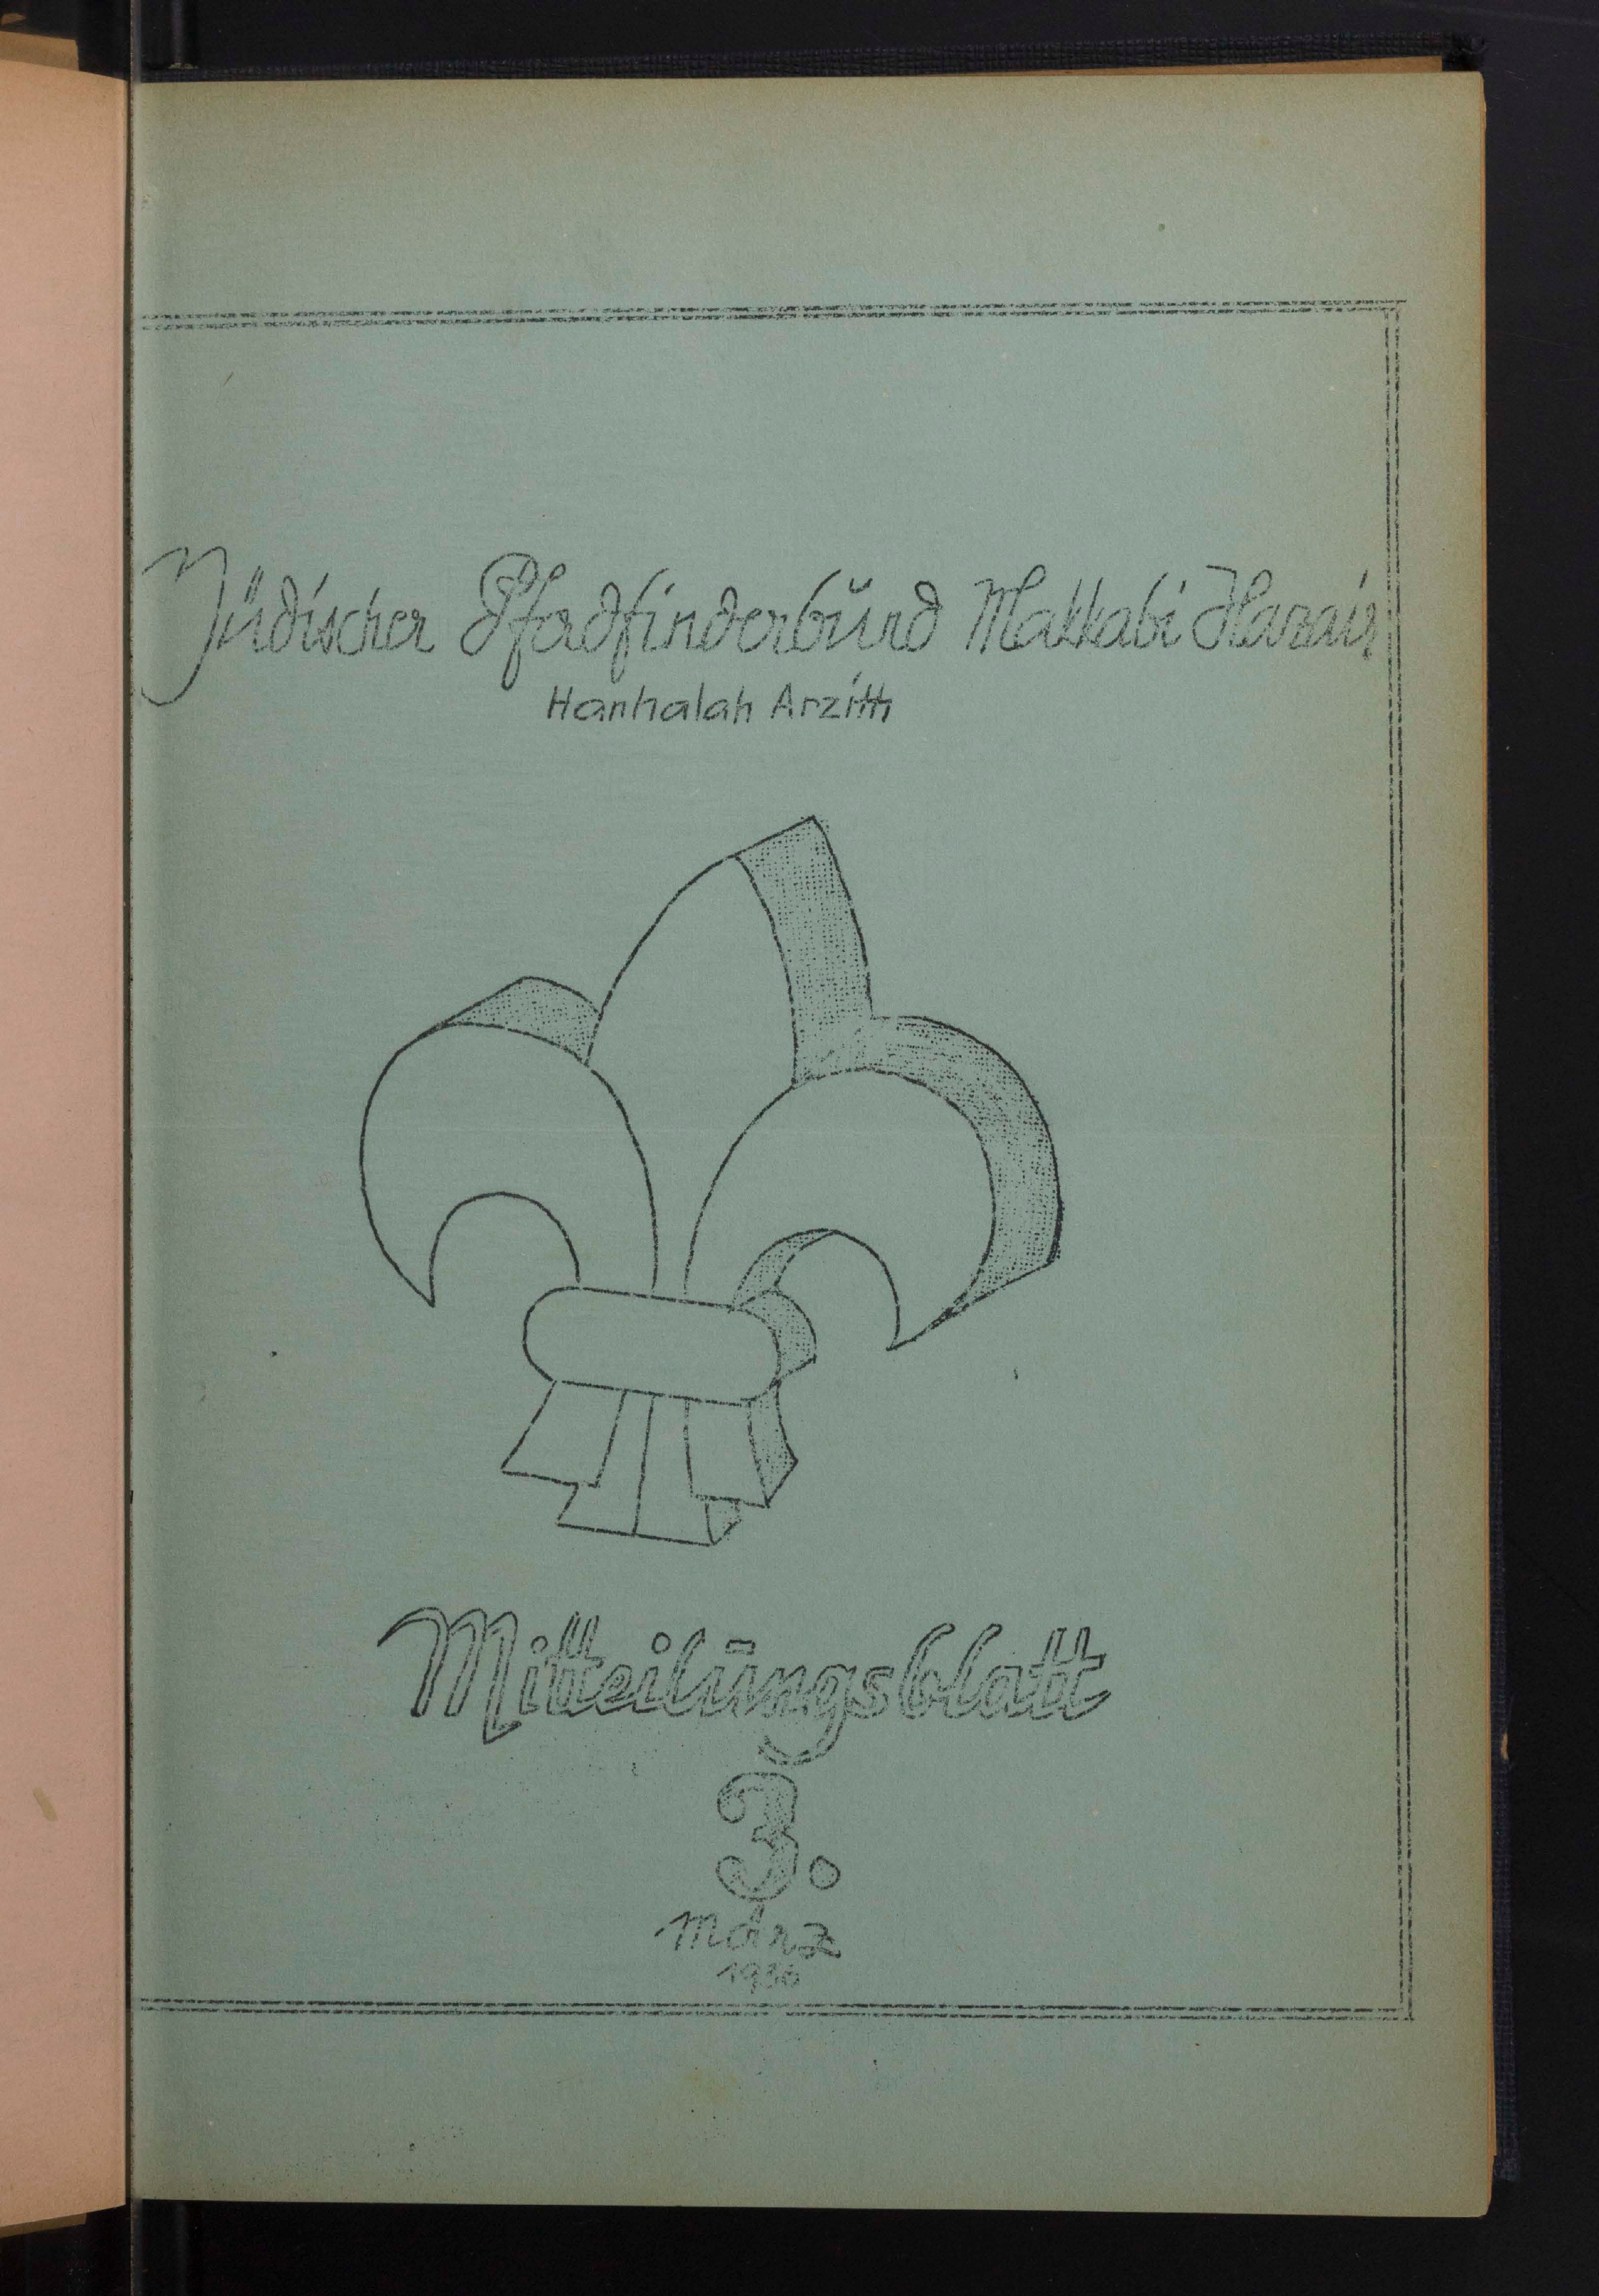 Jüdischer Pfadfinderbund Makkabi Hazair
Hanhalah Arzith
Mitteilungsblatt
3.
März
1936